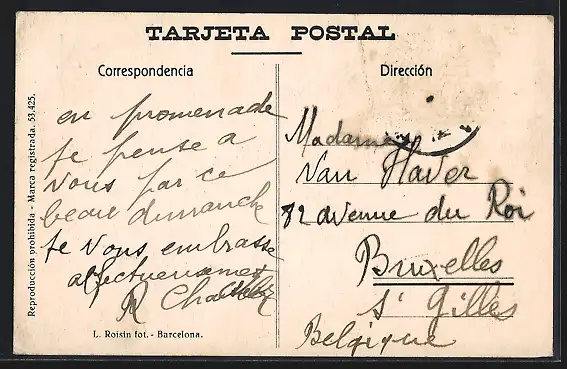 TARJETA POSTAL
Correspondencia
Dirección
en promenade
je pense a
vous par ce
beau dimanche
je vous embrasse
affectueusement
R
Madame
Van Haver
82 avenue du Roi
Bruxelles
St Gilles
Belgique
Reproducción prohibida - Marca registrada. 53,425.
L. Roisin fot. - Barcelona.